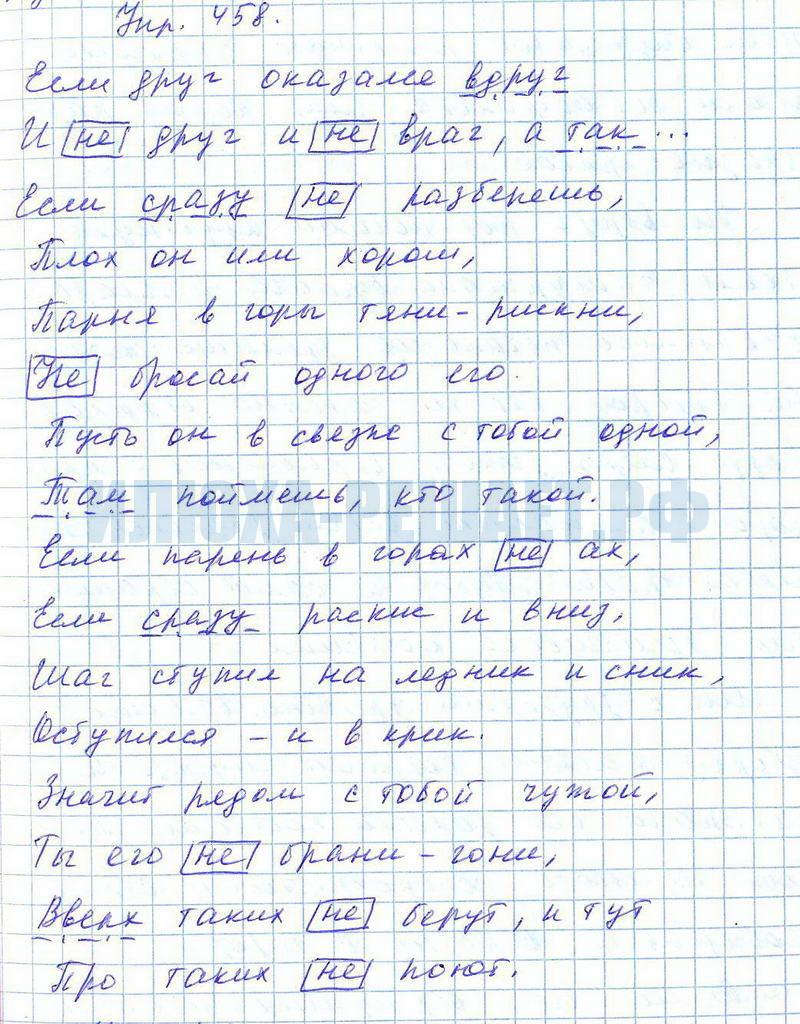 Упр. 458.
Если друг оказался вдруг
И не друг и не враг, а так...
Если сразу не разберешь,
Плох он или хорош,
Парня в горы тяни - рискни,
Не бросай одного его.
Пусть он в связке с тобой одной,
Там поймешь, кто такой.
ИЛЮХА-РЕШАЕТ.РФ
Если парень в горах не ах,
Если сразу раскис и вниз,
Шаг ступил на ледник и сник,
Оступился - и в крик.
Значит рядом с тобой чужой,
Ты его не брани - гони,
Вверх таких не берут, и тут
Про таких не поют.